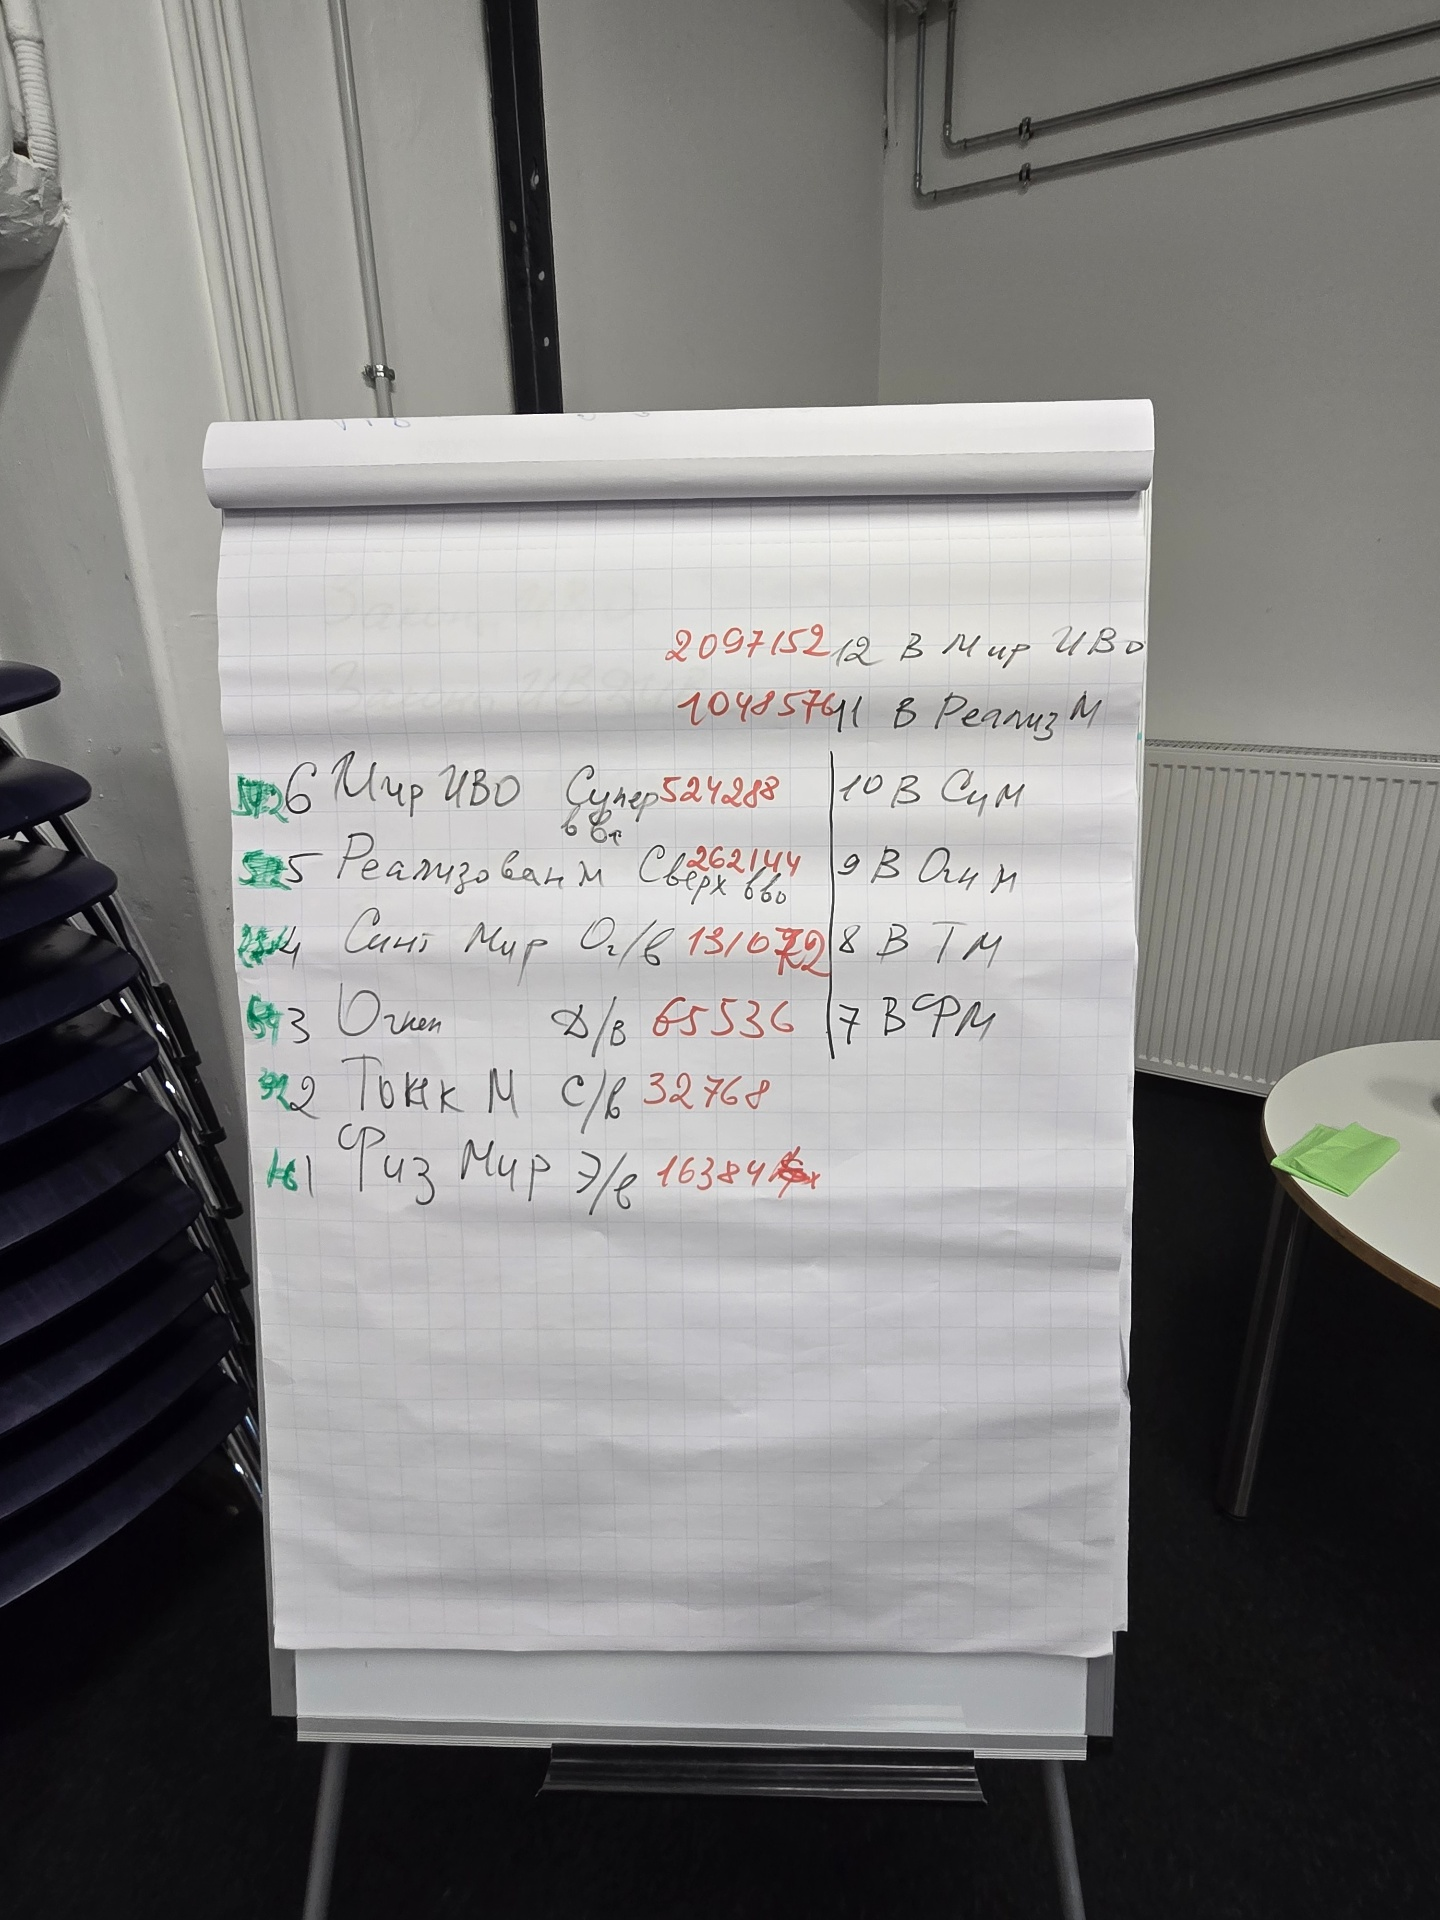 2097152 12 В Мир ИВО
1048576 11 В Реализ М
6 Мир ИВО Супер 524288 10 В Си М
5 Реализован М Сверх 262144 9 В Огн М
вво
4 Синт Мир Ог/в 131072 8 В ТМ
3 Огнен Д/в 65536 7 В ФМ
2 Тонк М С/в 32768
1 Физ Мир Э/в 16384